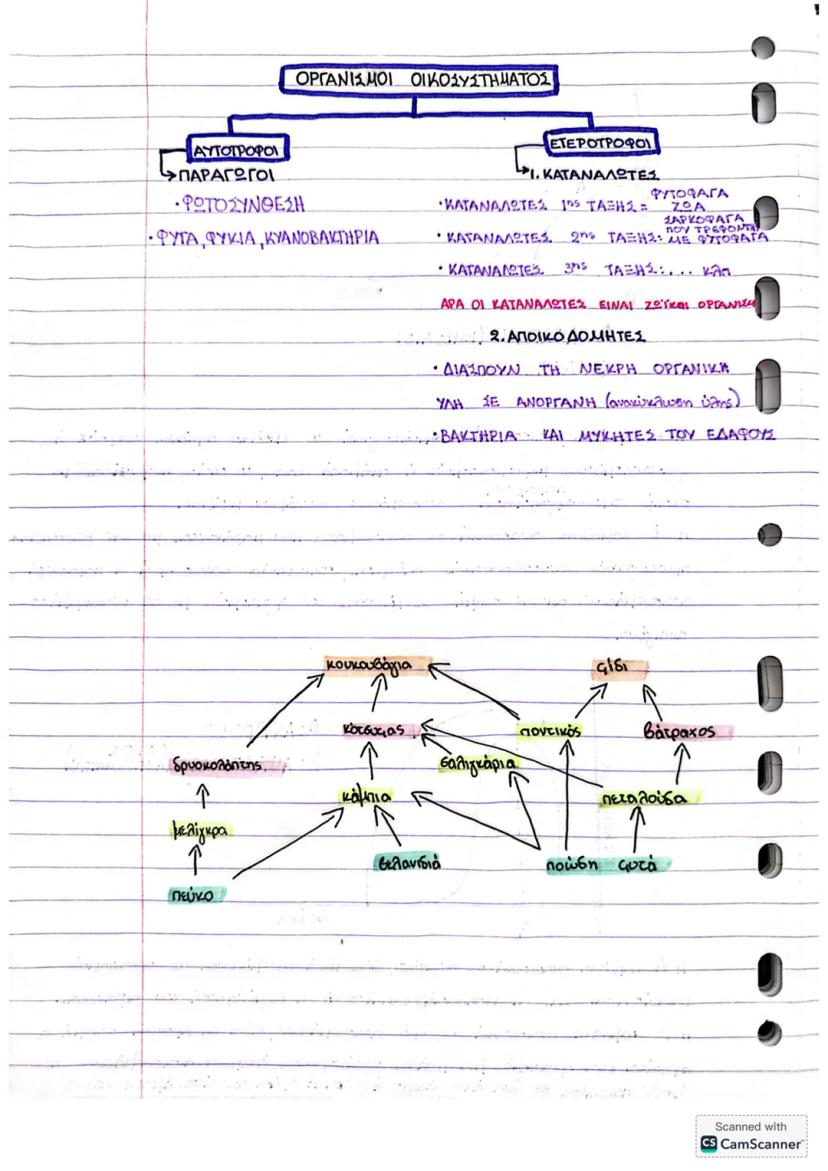 ΟΡΓΑΝΙΣΜΟΙ ΟΙΚΟΣΥΣΤΗΜΑΤΟΣ
ΑΥΤΟΤΡΟΦΟΙ
ΠΑΡΑΓΩΓΟΙ
• ΦΩΤΟΣΥΝΘΕΣΗ
• ΦΥΤΑ, ΦΥΚΙΑ, ΚΥΑΝΟΒΑΚΤΗΡΙΑ
ΕΤΕΡΟΤΡΟΦΟΙ
1. ΚΑΤΑΝΑΛΩΤΕΣ
• ΚΑΤΑΝΑΛΩΤΕΣ 1ης ΤΑΞΗΣ = ΦΥΤΟΦΑΓΑ ΖΩΑ
• ΚΑΤΑΝΑΛΩΤΕΣ 2ης ΤΑΞΗΣ: ΣΑΡΚΟΦΑΓΑ ΠΟΥ ΤΡΕΦΟΝΤΑΙ ΜΕ ΦΥΤΟΦΑΓΑ
• ΚΑΤΑΝΑΛΩΤΕΣ 3ης ΤΑΞΗΣ: ... κλπ
ΑΡΑ ΟΙ ΚΑΤΑΝΑΛΩΤΕΣ ΕΙΝΑΙ ΖΩΪΚΟΙ ΟΡΓΑΝΙΣΜ
2. ΑΠΟΙΚΟΔΟΜΗΤΕΣ
• ΔΙΑΣΠΟΥΝ ΤΗ ΝΕΚΡΗ ΟΡΓΑΝΙΚΗ
ΥΛΗ ΣΕ ΑΝΟΡΓΑΝΗ (ανακύκλωση ύλης)
• ΒΑΚΤΗΡΙΑ ΚΑΙ ΜΥΚΗΤΕΣ ΤΟΥ ΕΔΑΦΟΥΣ
κουκουβάγια φίδι
κότσυφας ποντικός βάτραχος
δρυοκολάπτης σαλιγκάρια
κάμπια πεταλούδα
μελίγκρα
βελανιδιά ποώδη φυτά
πεύκο
Scanned with
CS CamScanner